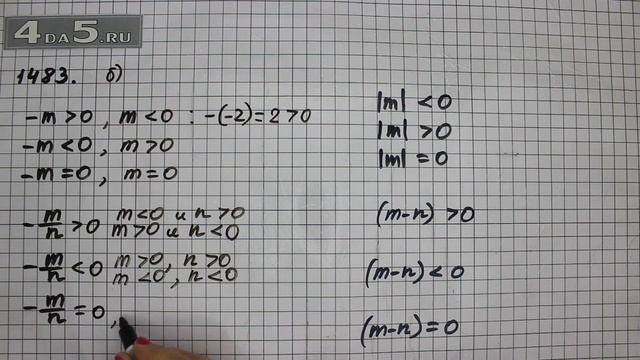 4DA5.RU
1483. б)
-m > 0, m < 0 : -(-2) = 2 > 0
-m < 0, m > 0
-m = 0, m = 0
-m/n > 0 m < 0 и n > 0
m > 0 и n < 0
-m/n < 0 m > 0, n > 0
m < 0, n < 0
-m/n = 0,
|m| < 0
|m| > 0
|m| = 0
(m-n) > 0
(m-n) < 0
(m-n) = 0